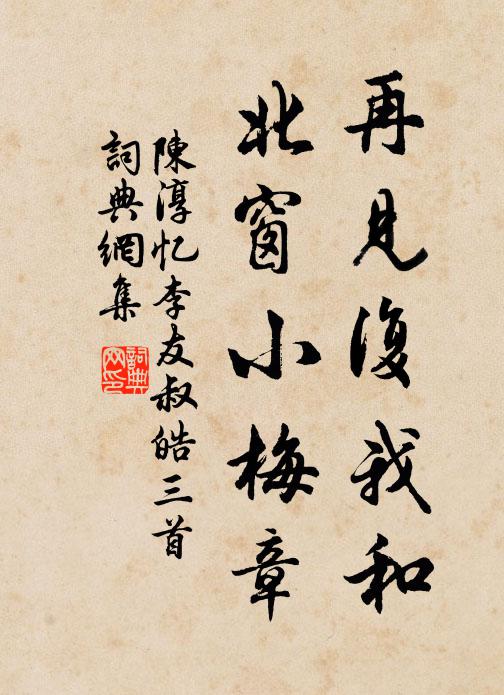 再見復我和
北窗小梅章
陳淳忆李友叔皓三首
詞典網集
詞典网印